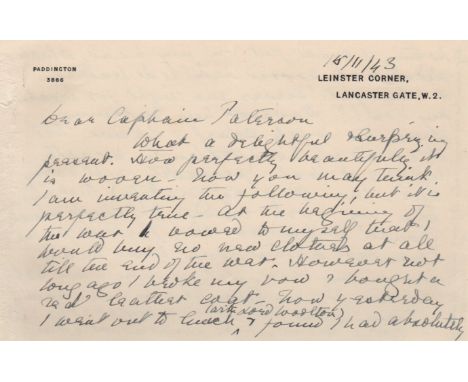 PADDINGTON
3866
15/11/43
LEINSTER CORNER,
LANCASTER GATE, W.2.
Dear Captain Paterson
What a delightful & surprising
present. How perfectly beautifully it
is woven. Now you may think
I am inventing the following, but it is
perfectly true - at the beginning of
the war I vowed to myself that I
would buy no new clothes at all
till the end of the war. However not
long ago I broke my vow & bought a
red leather coat - now yesterday
(with Lord Woolton)
I went out to lunch & found I had absolutely